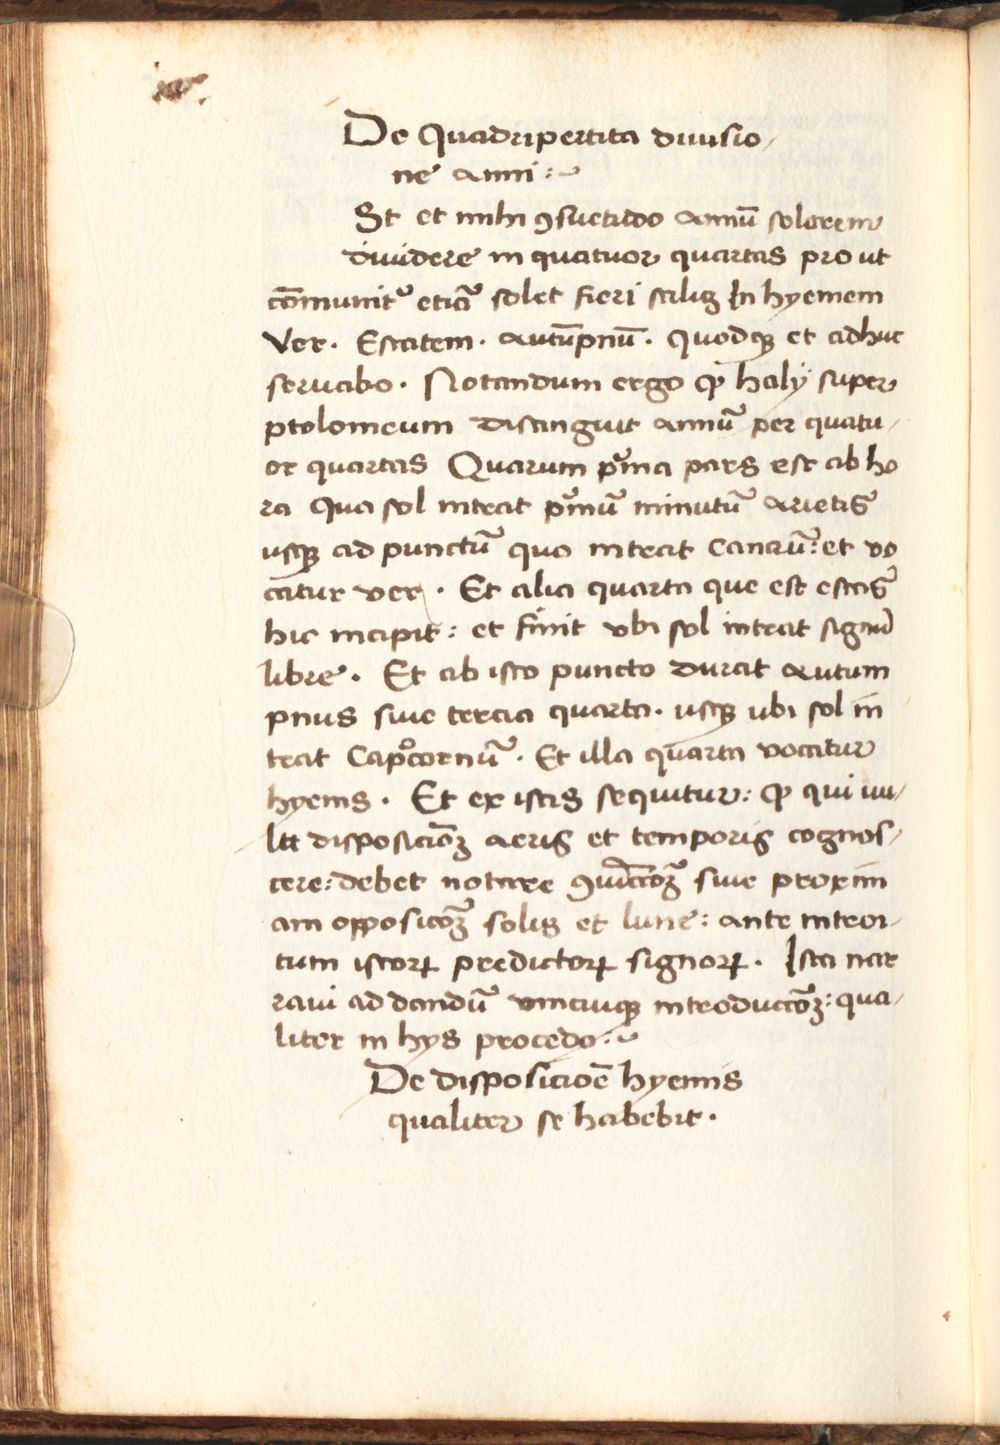 De Quadripertita diuisio
ne anni :
St et mihi ꝯsuetudo annū solarem
diuidere in quatuor quartas pro ut
cōmunitᵉ etiā solet fieri scilicꝫ In hyemem
Ver. Estatem. autūpnū. Quodqꝫ et adhuc
seruabo. Notandum ergo ꝙ haly super
ptolomeum distinguit annū per quatu
or quartas Quarum pⁱma pars est ab ho
ra qua sol intrat pⁱmū minutū arietis
usqꝫ ad punctū quo intrat Cancrū: et vo
catur ver. Et alia quarta que est estas
hic incipit: et finit vbi sol intrat signū
libre. Et ab isto puncto durat autum
pnus siue tercia quarta. usqꝫ ubi sol in
trat Capⁱcornū. Et illa quarta vocatur
hyems. Et ex istis sequitur: ꝙ qui uu
lt disposiciōꝫ aeris et temporis cognos
cere: debet notare ꝯiūctiōꝫ siue proxim
am opposicōꝫ solis et lune: ante introi
tum istorꝝ predictorꝝ signorꝝ. Ista nar
raui ad dandū vnicuiqꝫ introductiōꝫ: qua
liter in hys procedo:
De disposicioē hyemis
qualiter se habebit.